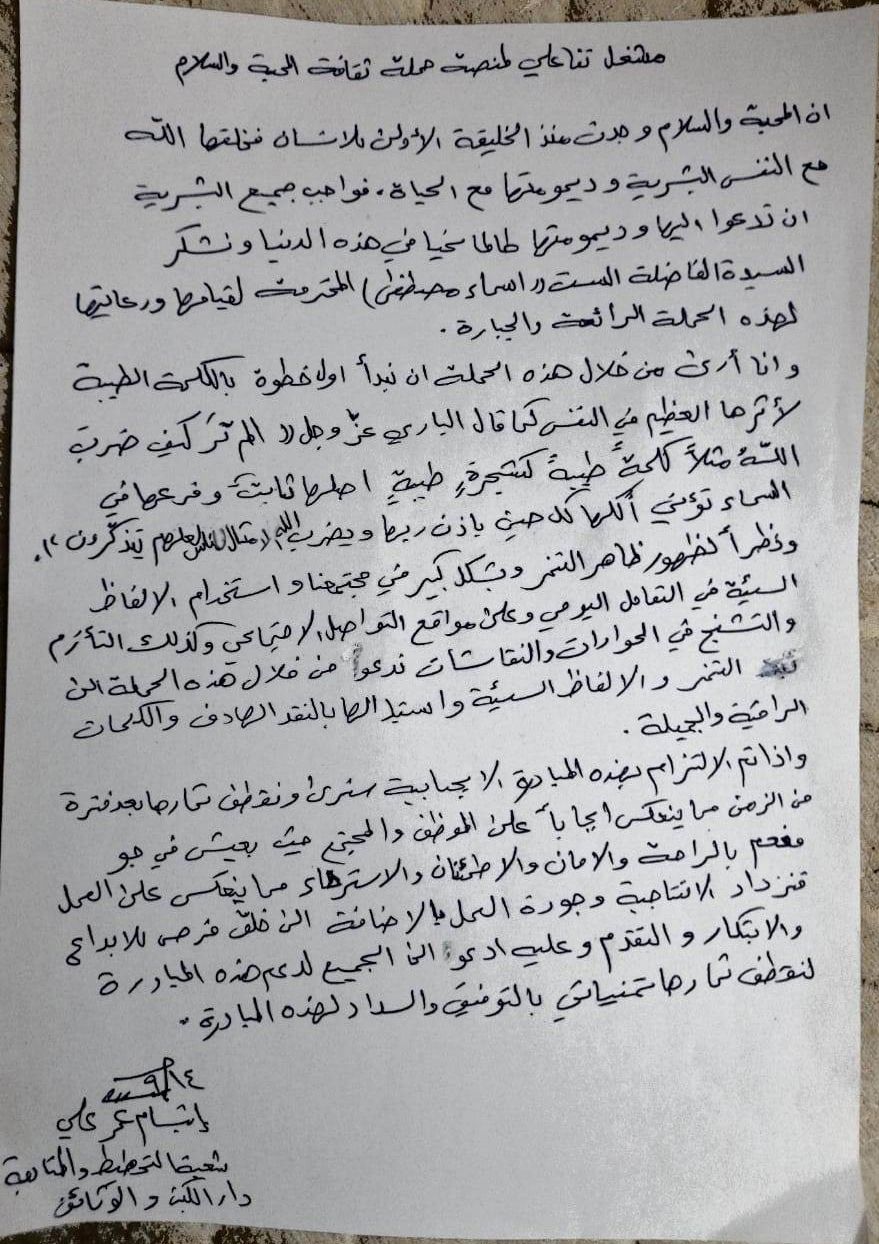 مشغل تفاعلي لمنصة حملة ثقافة المحبة والسلام
ان المحبة والسلام وجدت منذ الخليقة الأولى للانسان فخلقها الله
مع النفس البشرية وديمومتها مع الحياة. فواجب جميع البشرية
ان تدعوا اليها وديمومتها طالما نحيا في هذه الدنيا ونشكر
السيدة الفاضلة الست ((اسماء مصطفى) المحترمة لقيامها ورعايتها
لهذه الحملة الرائعة والجبارة.
وانا أرى من خلال هذه الحملة ان نبدأ اول خطوة بالكلمة الطيبة
لأثرها العظيم في النفس كما قال الباري عزّ وجل (( الم ترَ كيف ضربَ
اللهُ مثلاً كلمةً طيبةً كشجرةٍ طيبةٍ اصلها ثابتٌ وفرعها في
السماء تؤتي أُكلها كل حينٍ باذن ربها ويضرب الله الامثال للناس لعلهم يتذكّرون )).
ونظراً لظهور ظاهر التنمر وبشكل كبير في مجتمعنا واستخدام الالفاظ
السيئة في التعامل اليومي وعلى مواقع التواصل الاجتماعي وكذلك التأزم
والتشنج في الحوارات والنقاشات ندعوا من خلال هذه الحملة الى
التنمر والالفاظ السيئة واستبدالها بالنقد الهادف والكلمات
الراقية والجميلة.
واذا تم الالتزام بهذه المبادرة الايجابية سنرى ونقطف ثمارها بعد فترة
من الزمن مما ينعكس ايجاباً على الموظف والمجتمع حيث يعيش في جو
مفعم بالراحة والامان والاطمئنان والاسترخاء مما ينعكس على العمل
فتزداد الانتاجية وجودة العمل بالاضافة الى خلق فرص للابداع
والابتكار والتقدم وعليه ادعو الى الجميع لدعم هذه المبادرة
لنقطف ثمارها تمنياتي بالتوفيق والسداد لهذه المبادرة.
٩/١٤
إبتسام عمر علي
شعبة التخطيط والمتابعة
دار الكتب والوثائق